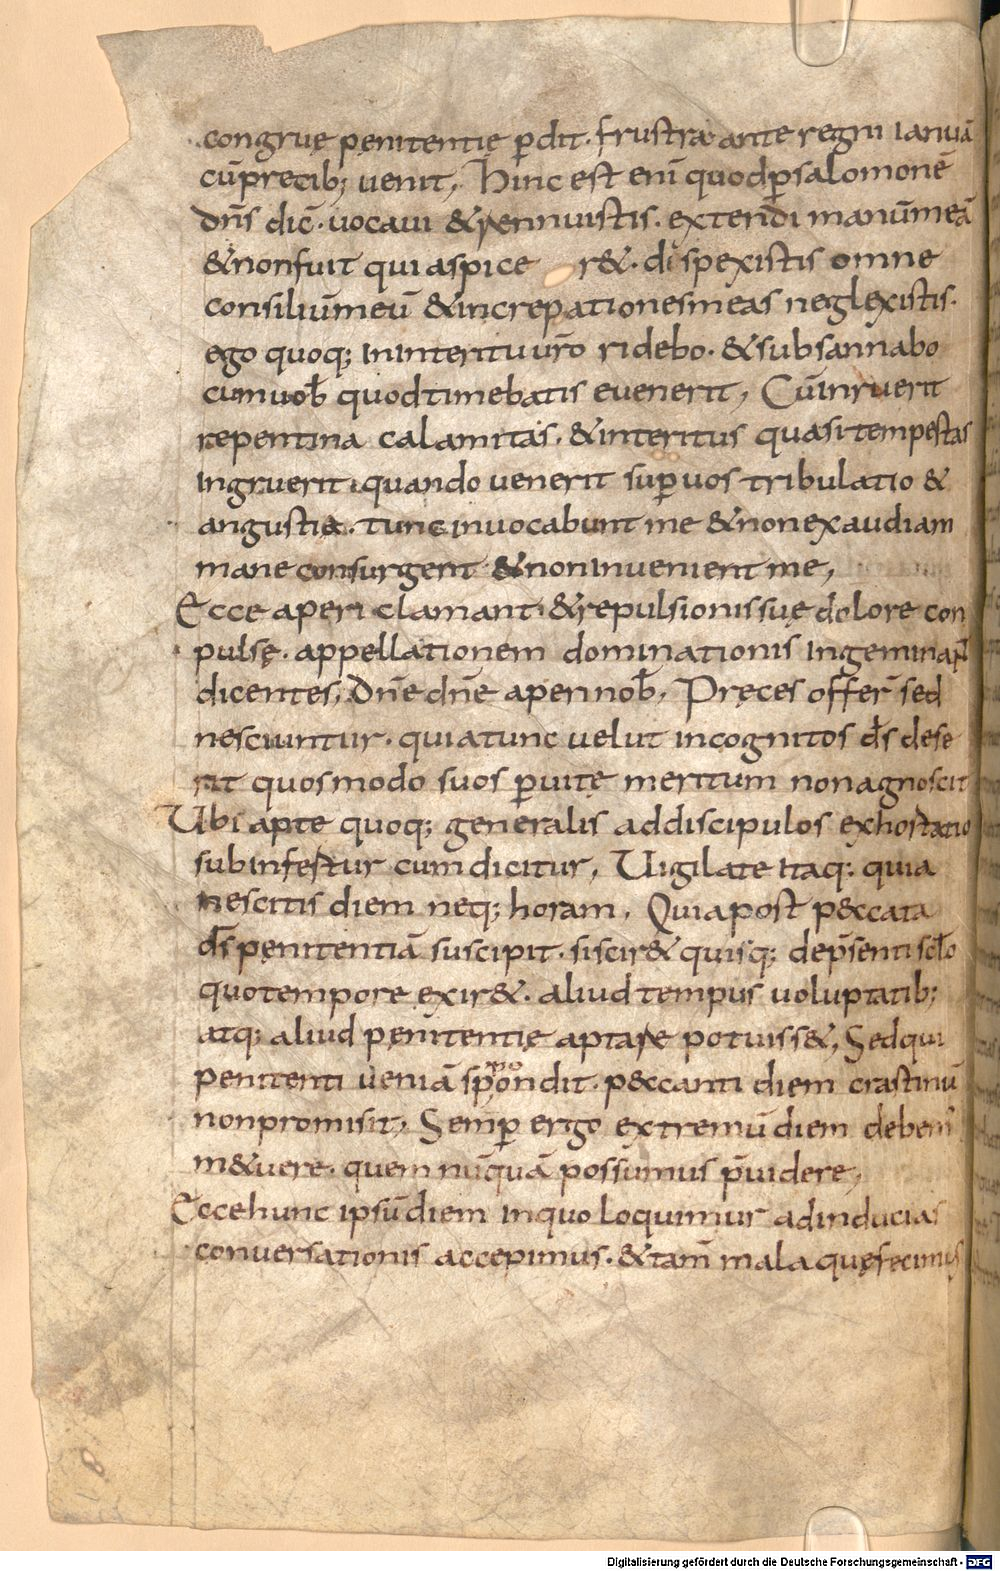 congruę penitentię ꝑdit· frustra ante regni ianuā
cū precib; uenit, Hinc est eni̅ quod ꝑ salomone̅
dn̅s dic̅· uocaui & rennuistis· extendi manū meā
& non fuit qui aspice r&· dispexistis omne
consiliū meū & increpationes meas neglexistis·
ego quoq; in interitu ur̅o ridebo· & subsannabo
cum uob̅ quod timebatis euenerit, Cū inruerit
repentina calamitas· & interitus quasi tempestas
ingruerit· quando uenerit suꝑ uos tribulatio &
angustia· tunc inuocabunt me & non exaudiam
mane consurgent & non inuenient me,
Ecce aperi clamant· & repulsionis suę dolore con
pulsę· appellationem dominationis ingeminant
dicentes, Dn̅e dn̅e aperi nob̅, Pręces offer̅ sed
nesciuntur· quia tunc uelut incognitos d̅s dese
rit quos modo suos ꝑ uitę meritum non agnoscit
Ubi apte quoq; generalis ad discipulos exhostatio
subinfertur cum dicitur, Uigilate itaq; quia
nescitis diem neq; horam, Quia post p&cata
d̅s pęnitentiā suscipit· si scir& quisq; de p̅senti sc̅lo
quo tempore exir&· aliud tempus uoluptatib;
atq; aliud pęnitentię aptare potuiss&, Sed qui
penitenti ueniā spopondit· p&canti diem crastinū
non promisit, Semꝑ ergo extremū diem debem'
m&uere· quem nūquā possumus p̅uidere,
Ecce hunc ipsū diem in quo loquimur ad inducias
conuersationis accepimus· & tam̅ mala quę fecimus
Digitalisierung gefördert durch die Deutsche Forschungsgemeinschaft - DFG